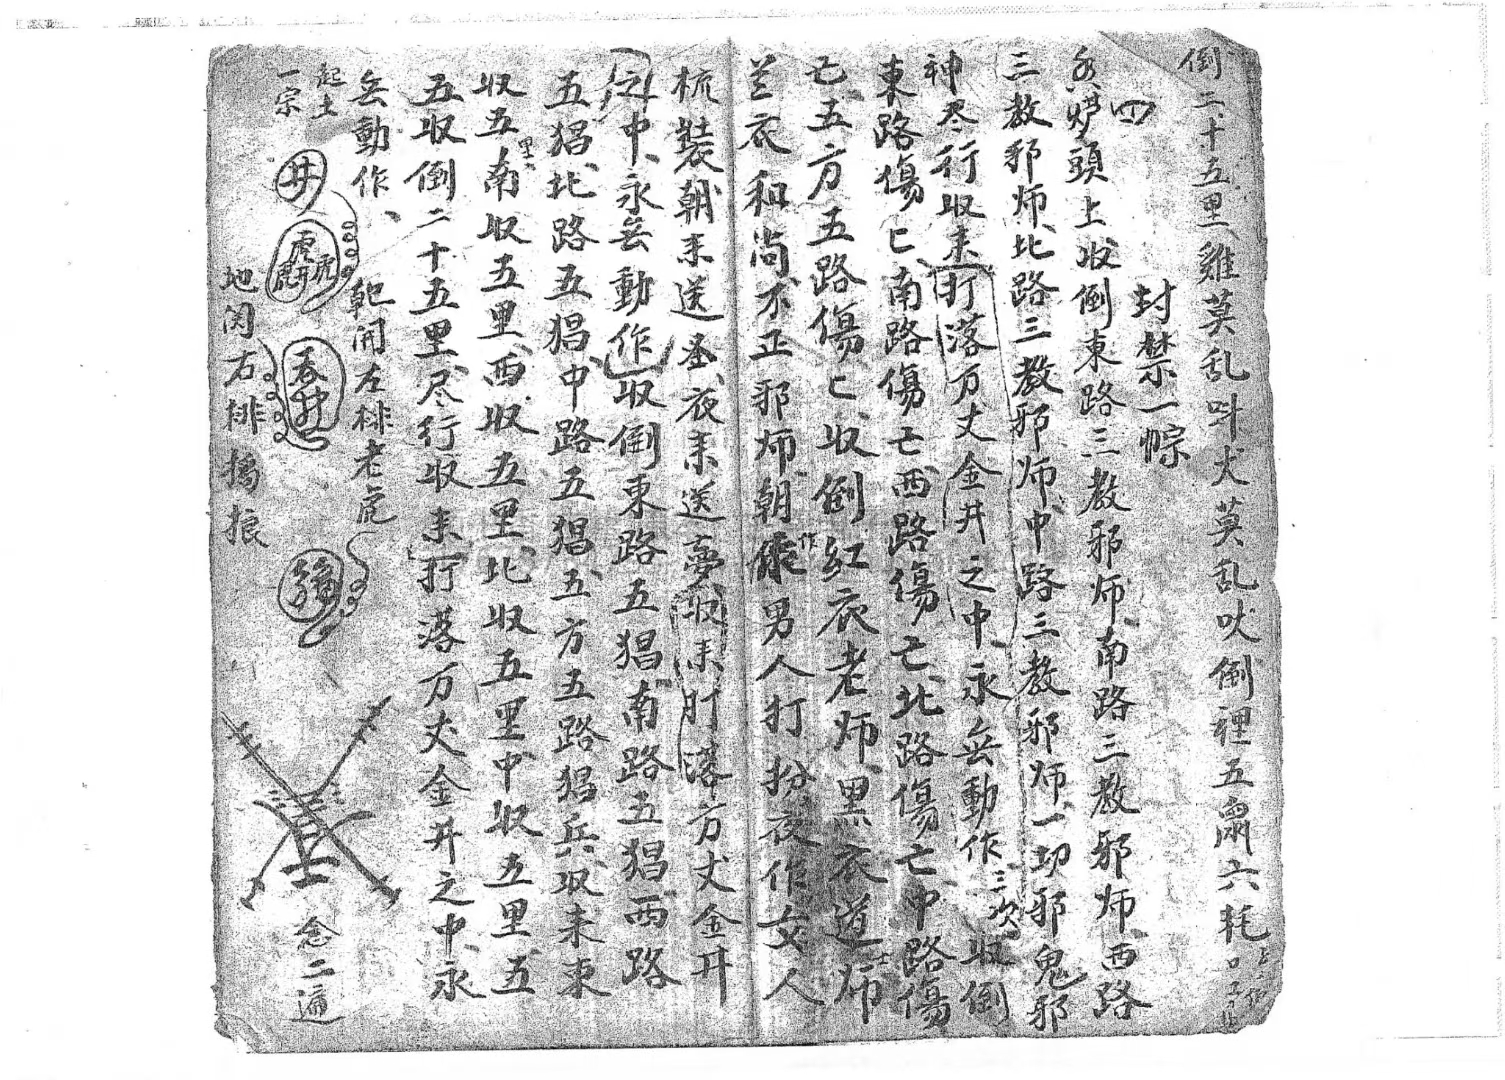 倒二十五里雞莫乱呌犬莫乱吠倒裡五 六耗
四 封禁一宗
香炉頭上收倒東路三教邪师南路三教邪师西路
三教邪师北路三教邪师中路三教邪师一切邪鬼邪
神尽行収来打落万丈金井之中永無動作三次収倒
東路傷亡南路傷亡西路傷亡北路傷亡中路傷
亡五方五路傷亡収倒紅衣老师黑衣道士师
兰衣和尚不正邪师朝作男人打扮夜作女人
梳裝朝来送圣夜来送夢収来打落万丈金井
之中永無動作収倒東路五猖南路五猖西路
五猖北路五猖中路五猖五方五路猖兵収来東
収五里南収五里西収五里北収五里中収五里五
五収倒二十五里尽行収来打落万丈金井之中永
無動作
起土一宗
井
虎虎虎井
吞井
乾開左排老虎
地闵右排 狼
念二遍